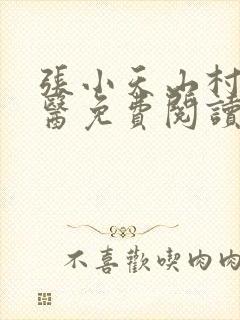 張小天山村
醫免費閱讀
不喜歡喫肉肉